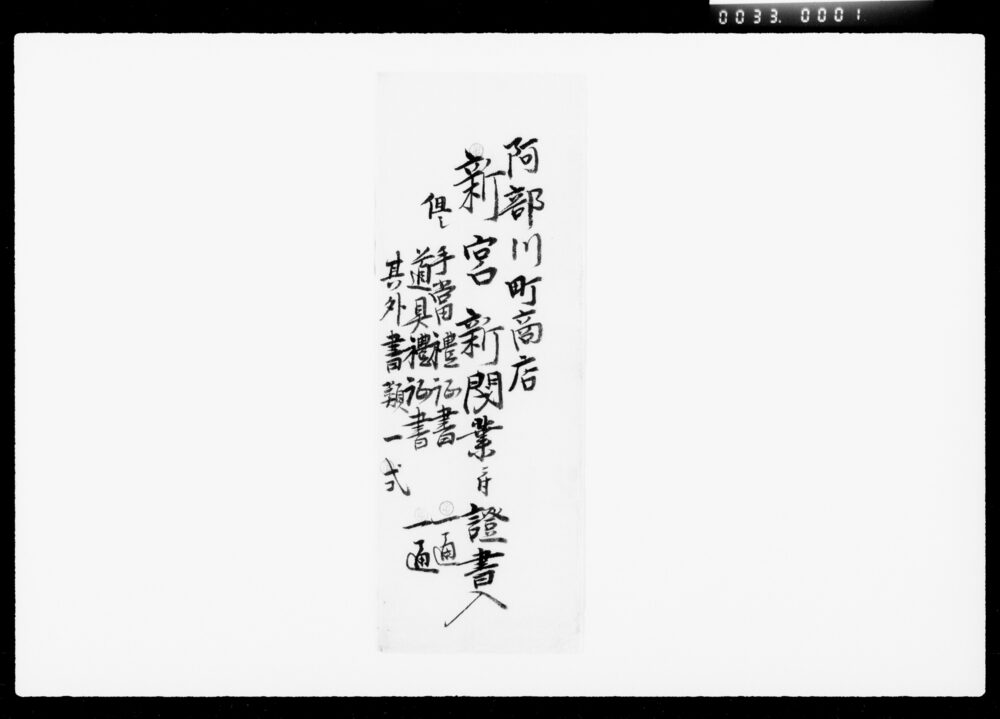 0033.0001
阿部川町商店
新宮新開業ニ付證書入
但シ
手當禮証書 一通
道具禮証書 一通
其外書類一式